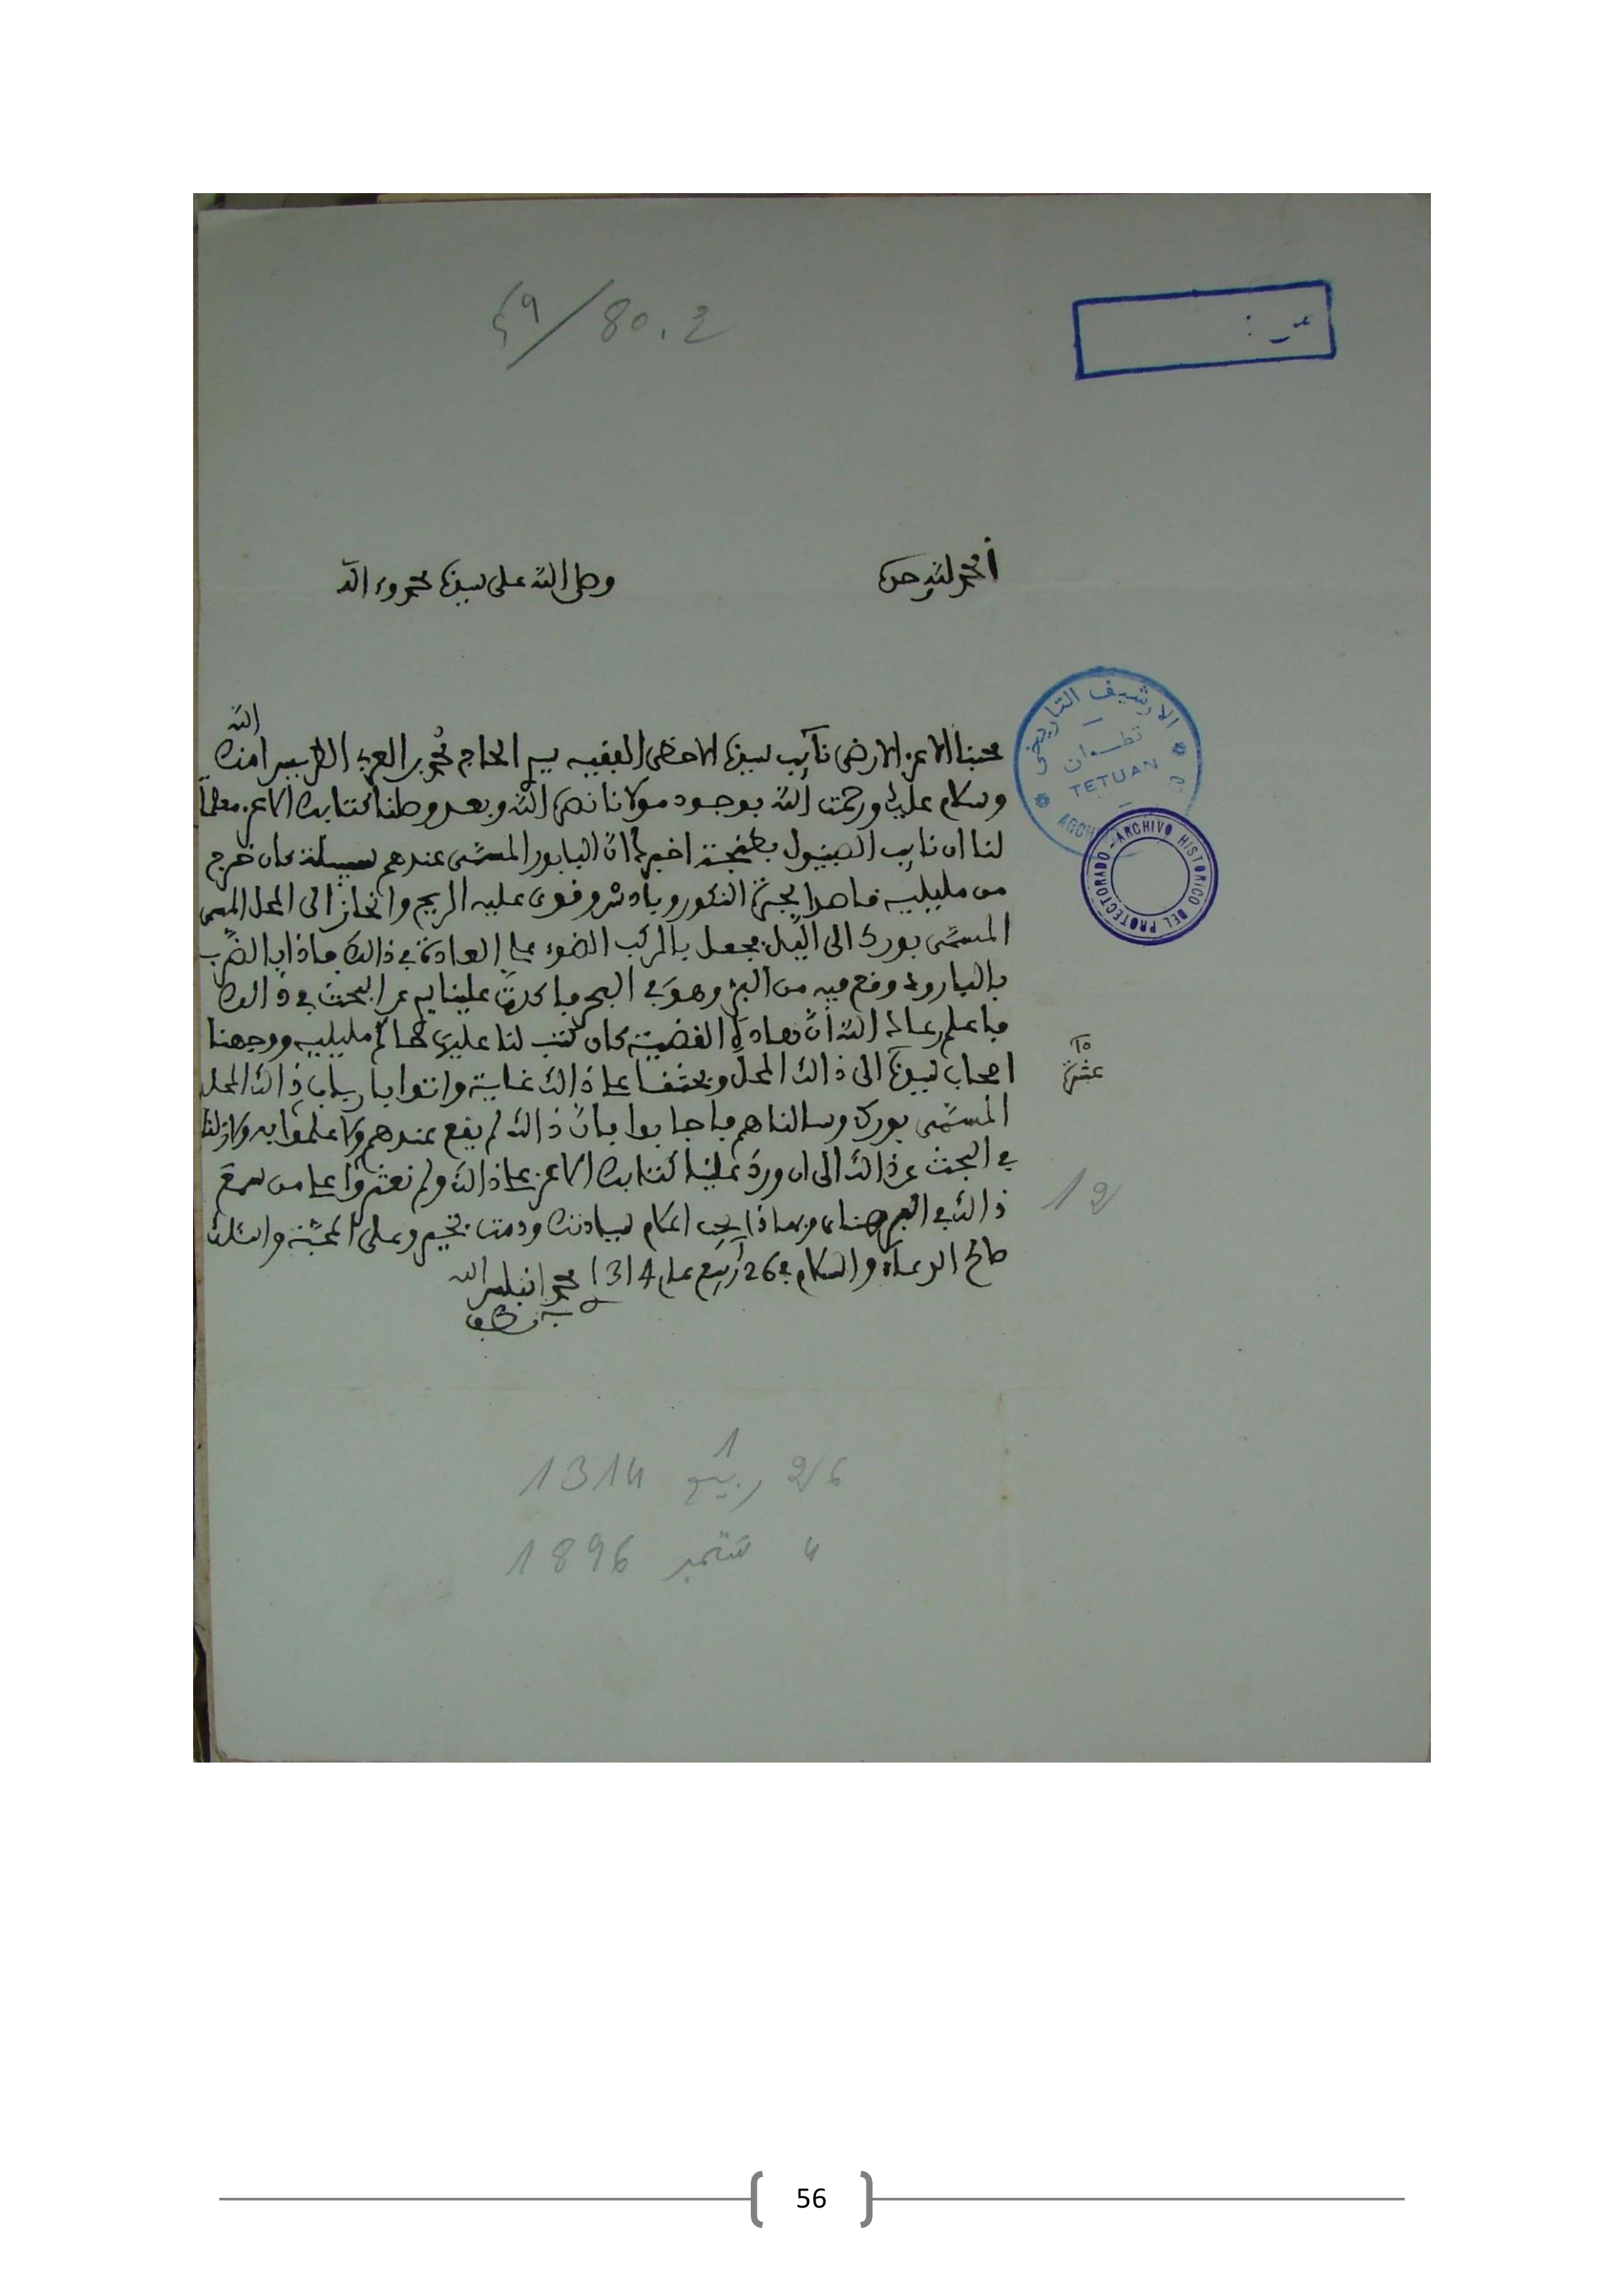 59/80.2
الحمد لله وحده
وصلى الله على سيدنا محمد وءاله
الارشيف التاريخي
تطـوان
TETUAN
ARCHIVO HISTORICO DEL PROTECTORADO
محبنا الاعز الارضى نآيب سيدنا الاحضى الفقيه سيد الحاج محمد بن العربي الطريس امنك الله
وسلام عليك ورحمت الله بوجود مولانا نصره الله وبعد وصلنا كتابك الاعز معلما
لنا ان نايب الصبنيول بطنجة اخبرك ان البابور المسمى عندهم سبيلة كان خرج
من مليلية قاصدا لجزر النكور وبادس وقوى عليه الريح وانحاز الى المحل
المسمى بورك الى اليل بجعل بالمركب الضوء على العادة في ذالك فاذا بالضرب
بالبارود وقع فيه من البر وهو في البحر فاكدت علينا في البحث في ذالك
فاعلم رعاك الله ان هاذه القضية كان كتب لنا عليها حاكم مليلية ووجهنا
اصحاب سيدنا الى ذالك المحل وبحثنا على ذالك غاية واتوا بارباب ذالك المحل
المسمى بورك وسالناهم فاجابوا بان ذالك لم يقع عندهم ولا علموا به ولا زلنا
في البحث عن ذالك الى ان ورد علينا كتابك الاعز على ذالك ولم نعثروا على من سمع
ذالك في البر هنا وبهاذا يجب اعلام سيادتك ودمت بخير وعلى المحبة واسئلك
صالح الدعاء والسلام في 26 ربيع 1 عام 1314
عشرة
12
26 ربيع 1 1314
4 شتمبر 1896
56